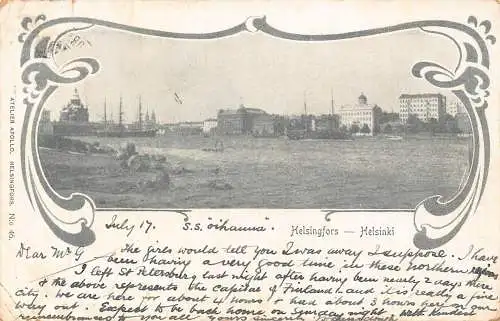 ATELIER APOLLO. HELSINGFORS. No 46.
Helsingfors — Helsinki
July 17. S.S. "Oihanna"
Dear Mr G
The girls would tell you I was away I suppose. I have
been having a very good time in these northern
I left St Petersburg last night after having been nearly 2 days there
& the above represents the capital of Finland and is really a fine
city. We are here for about 4 hours & had about 3 hours here on our
way out. Expect to be back home on Sunday night. With kindest
remembrances to you all Yours sincerely